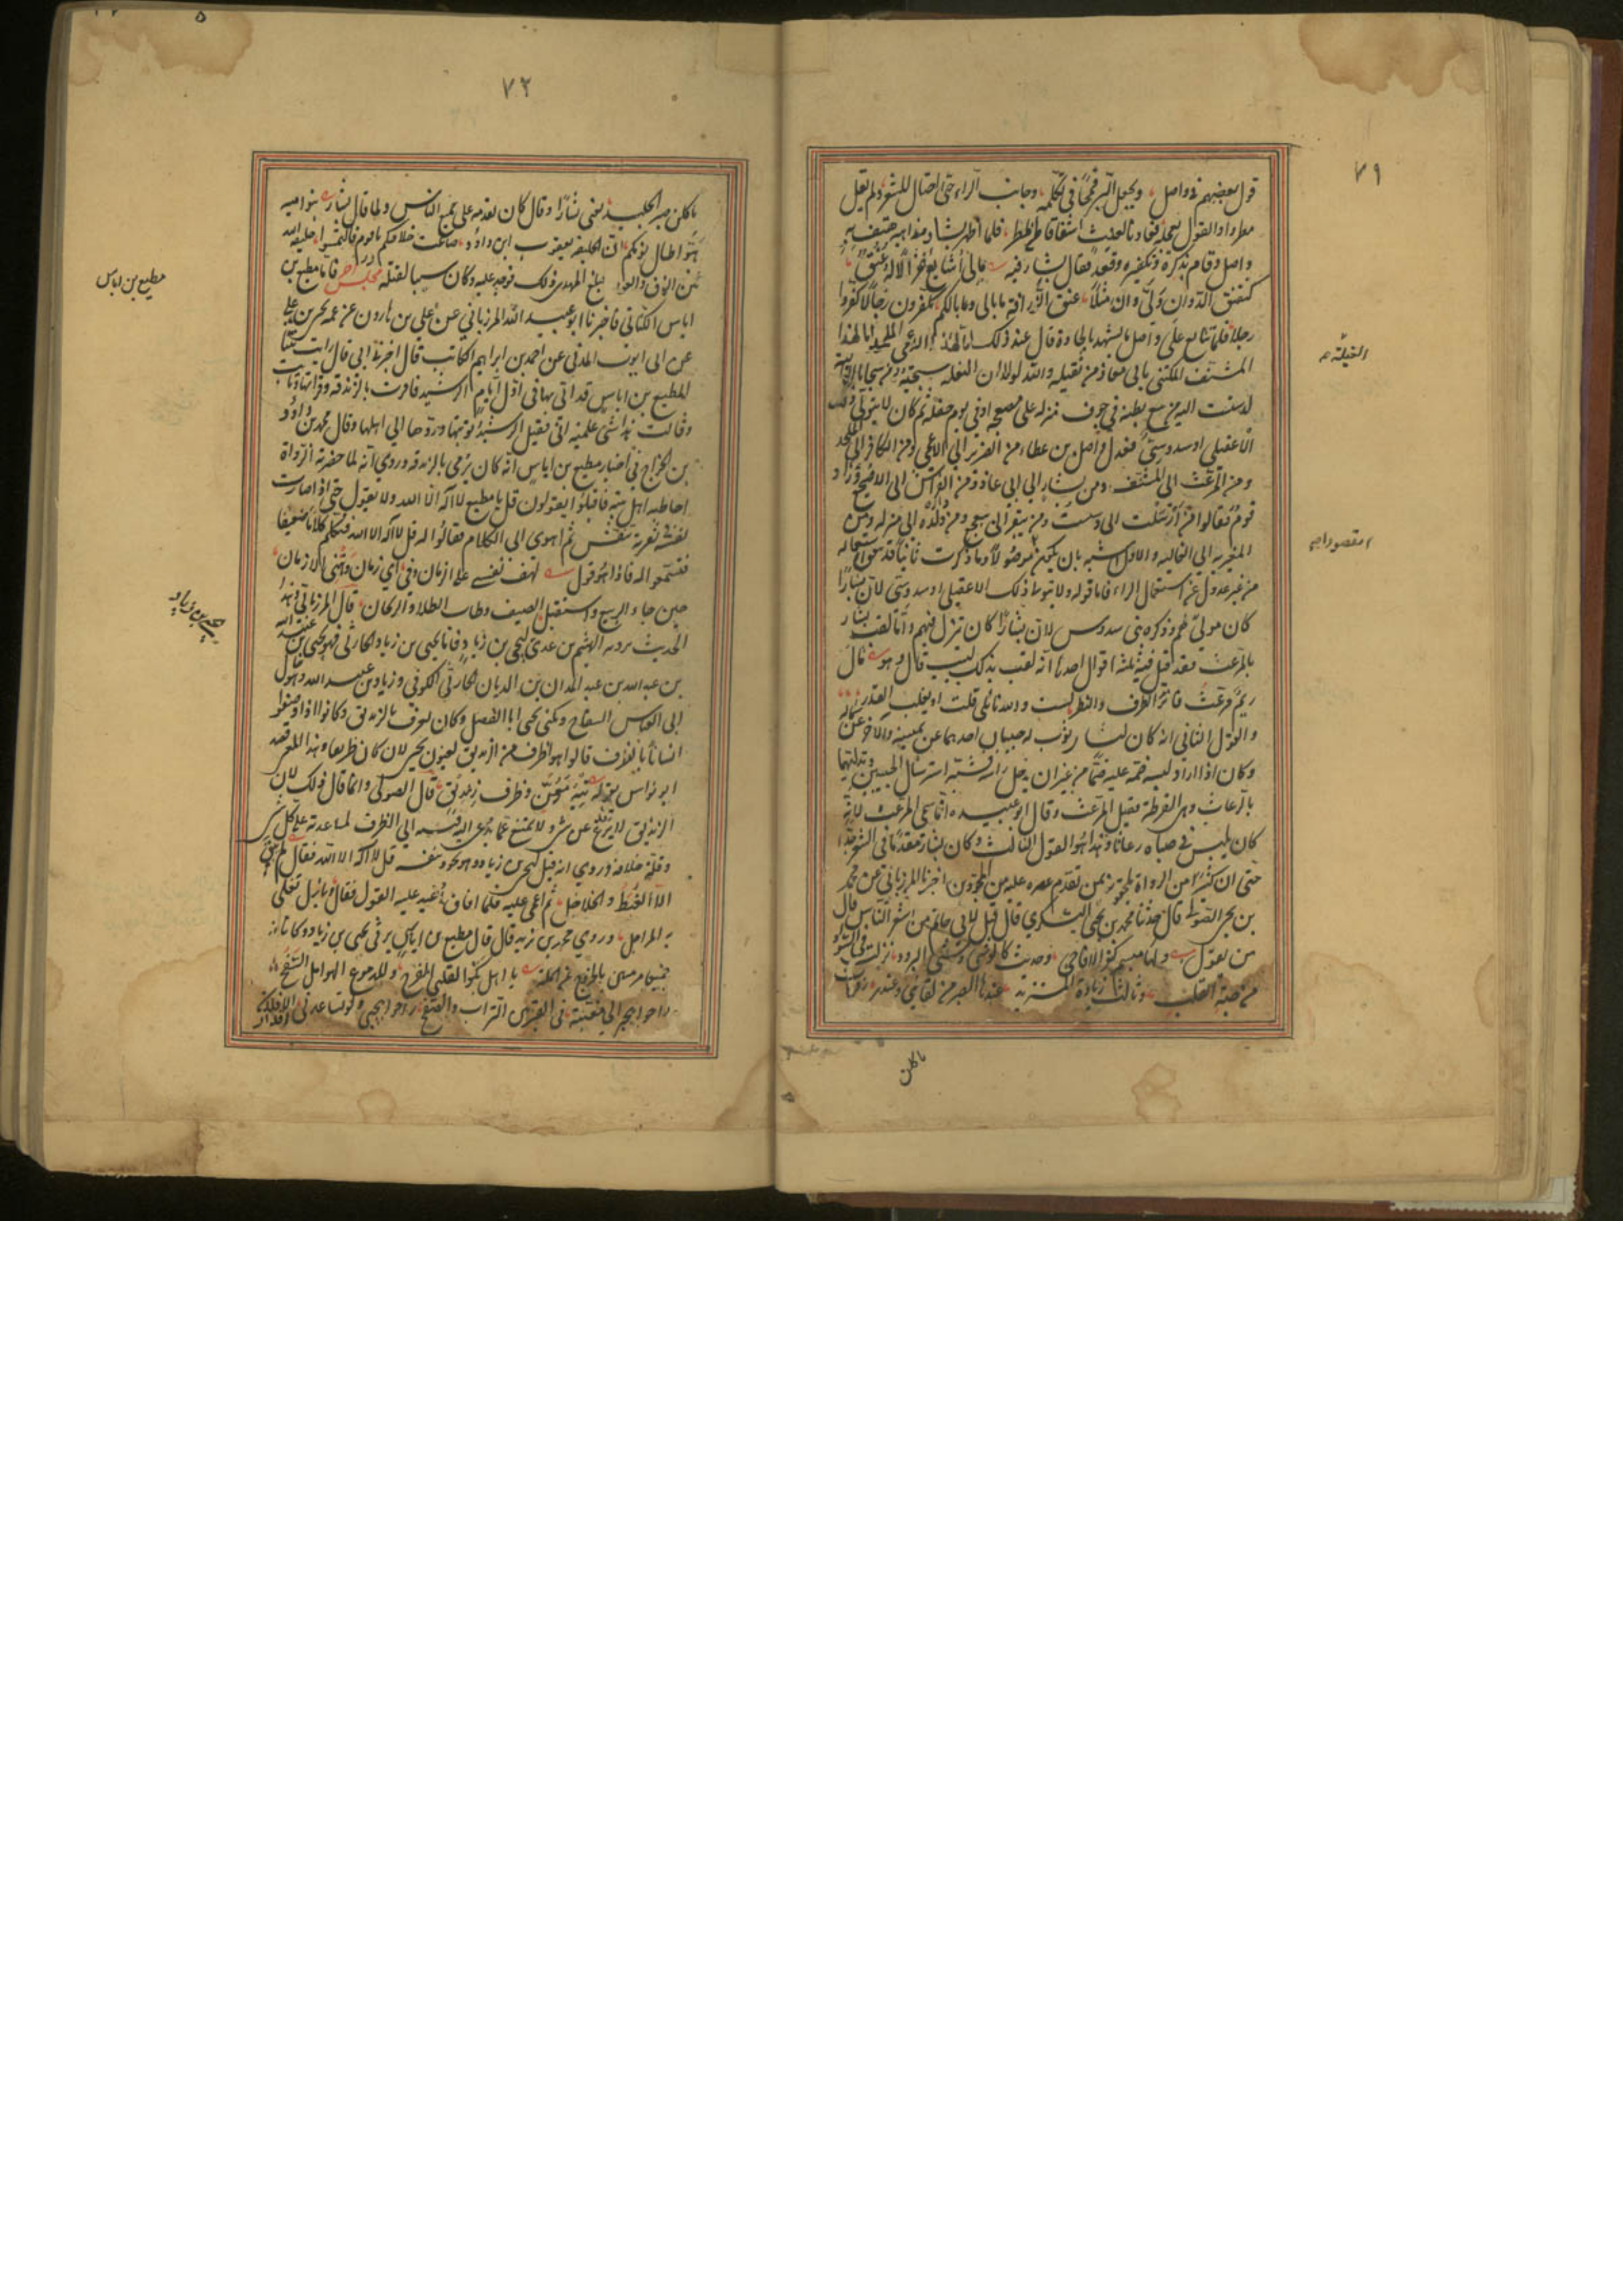 ٧٩
قول بعضهم في واصل ويجعل البر قمحا في تكلمه وجانب الراء حتى احتال للشعر ولم يقل
مطرا والقول يعجله فعاد بالغيث اشفاقا من المطر فلما اظهر بشار مذاهبه هتف به
واصل وقام بذكره وتكفيره وقعد فقال بشار فيه مالي أشايع غزالا له عنق
كنقنق الدو ان ولى وان مثلا عنق الزرافة ما بالي وما بالكم تكفرون رجالا كفروا
رجلا فلما تتابع على واصل ما يشهد بالحاده قال عند ذلك اما لهذا الاعمى الملحد اما لهذا
المشنف المكتني بابي معاذ من يقتله والله لولا ان الغيلة سجية من سجايا الغالية
لدسست اليه من يبعج بطنه في جوف منزله على مضجعه او في يوم حفله ثم كان لا يتولى ذلك
الا عقيلي او سدوسي فعدل واصل بن عطاء من الضرير الى الاعمى ومن الكافر الى الملحد
ومن المرعث الى المشنف ومن بشار الى ابي معاذ ومن الفراش الى المضجع وزاد
قوم فقالوا من ارسلت الى دسست ومن يبقر الى يبعج ومن داره الى منزله ومن
المغيرية الى الغالية والاول اشبه بان يكون مقصودا وما ذكرت ثانيا قد يتفق استعماله
من غير عدول عن استعمال الراء فاما قوله ولا يتولى ذلك الا عقيلي او سدوسي لان بشارا
كان مولى لهم وذكره بني سدوس لان بشارا كان ينزل فيهم واما لقب بشار
بالمرعث فقد قيل فيه ثلثة اقوال احدها انه لقب بذلك لبيت قاله وهو قال
ريم مرعث فاتر الطرف والنظر لست والله نائلي قلت او يغلب القدر
والقول الثاني انه كان لبشار ثوب له جيبان احدهما عن يمينه والآخر عن شماله
وكان اذا اراد لبسه ضمه عليه ضما من غير ان يدخل رأسه فشبه استرسال الجيبين وتدليهما
بالرعاث وهي القرطة فقيل المرعث وقال ابو عبيدة انما سمي المرعث لانه
كان يلبس في صباه رعاثا وهذا هو القول الثالث وكان بشار مقدما في الشعر جدا
حتى ان كثيرا من الرواة يلحقونه بمن تقدم عصره عليه من المجودين اخبرنا المرزباني عن محمد
بن يحيى الصولي قال حدثنا محمد بن يحيى اليشكري قال قيل لابي حاتم من اشعر الناس قال
من يقول ولها مبسم كغر الاقاحي وحديث كالوشي وشي البرود نزلت في السواد
من حبة القلب ونالت زيادة المستزيد عندها الصبر عن لقائي وعندي زفرات
ياكلن
الغيلة
مقصودا
٧٢
ياكلن صبر الجليد يعني بشارا وقال كان يقدمه على جميع الناس ولما قال بشار بنو امية
هبوا طال نومكم ان الخليفة يعقوب ابن داود ضاعت خلافتكم يا قوم فالتمسوا خليفة الله
بين الزق والعود بلغ المهدي ذلك فوجد عليه وكان سببا لقتله مجلس آخر فاما مطيع بن
اياس الكناني فاخبرنا ابو عبيد الله المرزباني عن علي بن هارون عن عمه يحيى بن علي
عن ابي ايوب المدني عن احمد بن ابراهيم الكاتب قال اخبرنا ابي قال رايت بنتا
لمطيع بن اياس قد اتي بها في اول ايام الرشيد فاقرت بالزندقة وقراتها وتابت
وقالت هذا شيء علمنيه ابي فقبل الرشيد توبتها وردها الى اهلها وقال محمد بن داود
بن الجراح في اخبار مطيع بن اياس انه كان يرمى بالزندقة وروي انه لما حضرته الوفاة
احاط به اهل بيته فاقبلوا يقولون قل يا مطيع لا اله الا الله ولا يقول حتى اذا صارت
نفسه في ثغرة تنفس ثم اهوى الى الكلام فقالوا له قل لا اله الا الله فتكلم كلاما ضعيفا
فتسمعوا له فاذا هو يقول لهف نفسي على الزمان وفي اي زمان دهتني الازمان
حين جاء الربيع واستقبل الصيف وطاب الطلاء والريحان قال المرزباني وهذا
الحديث يرويه الهيثم بن عدي ليحيى بن زياد فاما يحيى بن زياد الحارثي فهو يحيى بن زياد بن عبيد الله
بن عبد الله بن عبد المدان بن الديان الحارثي الكوفي وزياد بن عبيد الله وهو خال
ابي العباس السفاح ويكنى يحيى ابا الفضل وكان يعرف بالزنديق وكانوا اذا وصفوا
انسانا بالظرف قالوا هو اظرف من الزنديق يعنون يحيى لانه كان ظريفا وهذا المعنى قصد
ابو نواس بقوله تيه مغن وظرف زنديق قال الصولي وانما قال ذلك لان
الزنديق لا يرع عن شيء ولا يمتنع عما يدعى اليه فنسبه الى الظرف لمساعدته على كل شيء
وقلة خلافه وروي انه قيل ليحيى بن زياد وهو يجود بنفسه قل لا اله الا الله فقال لم يبق
الا القرط والخلاخل ثم اغمي عليه فلما افاق اعيد عليه القول فقال وبازل تغلي
به المراجل وروى محمد بن يزيد قال قال مطيع بن اياس يرثي يحيى بن زياد وكانا
جميعا مرميين بالخروج عن الملة يا اهل بكوا لقلبي القرح وللدموع الهوامل السفح
راحوا بيحيى الى مغيبة في القبر بين التراب والصفح راحوا بيحيى ولو تساعدني الاقدار
مطيع بن اياس
يحيى بن زياد